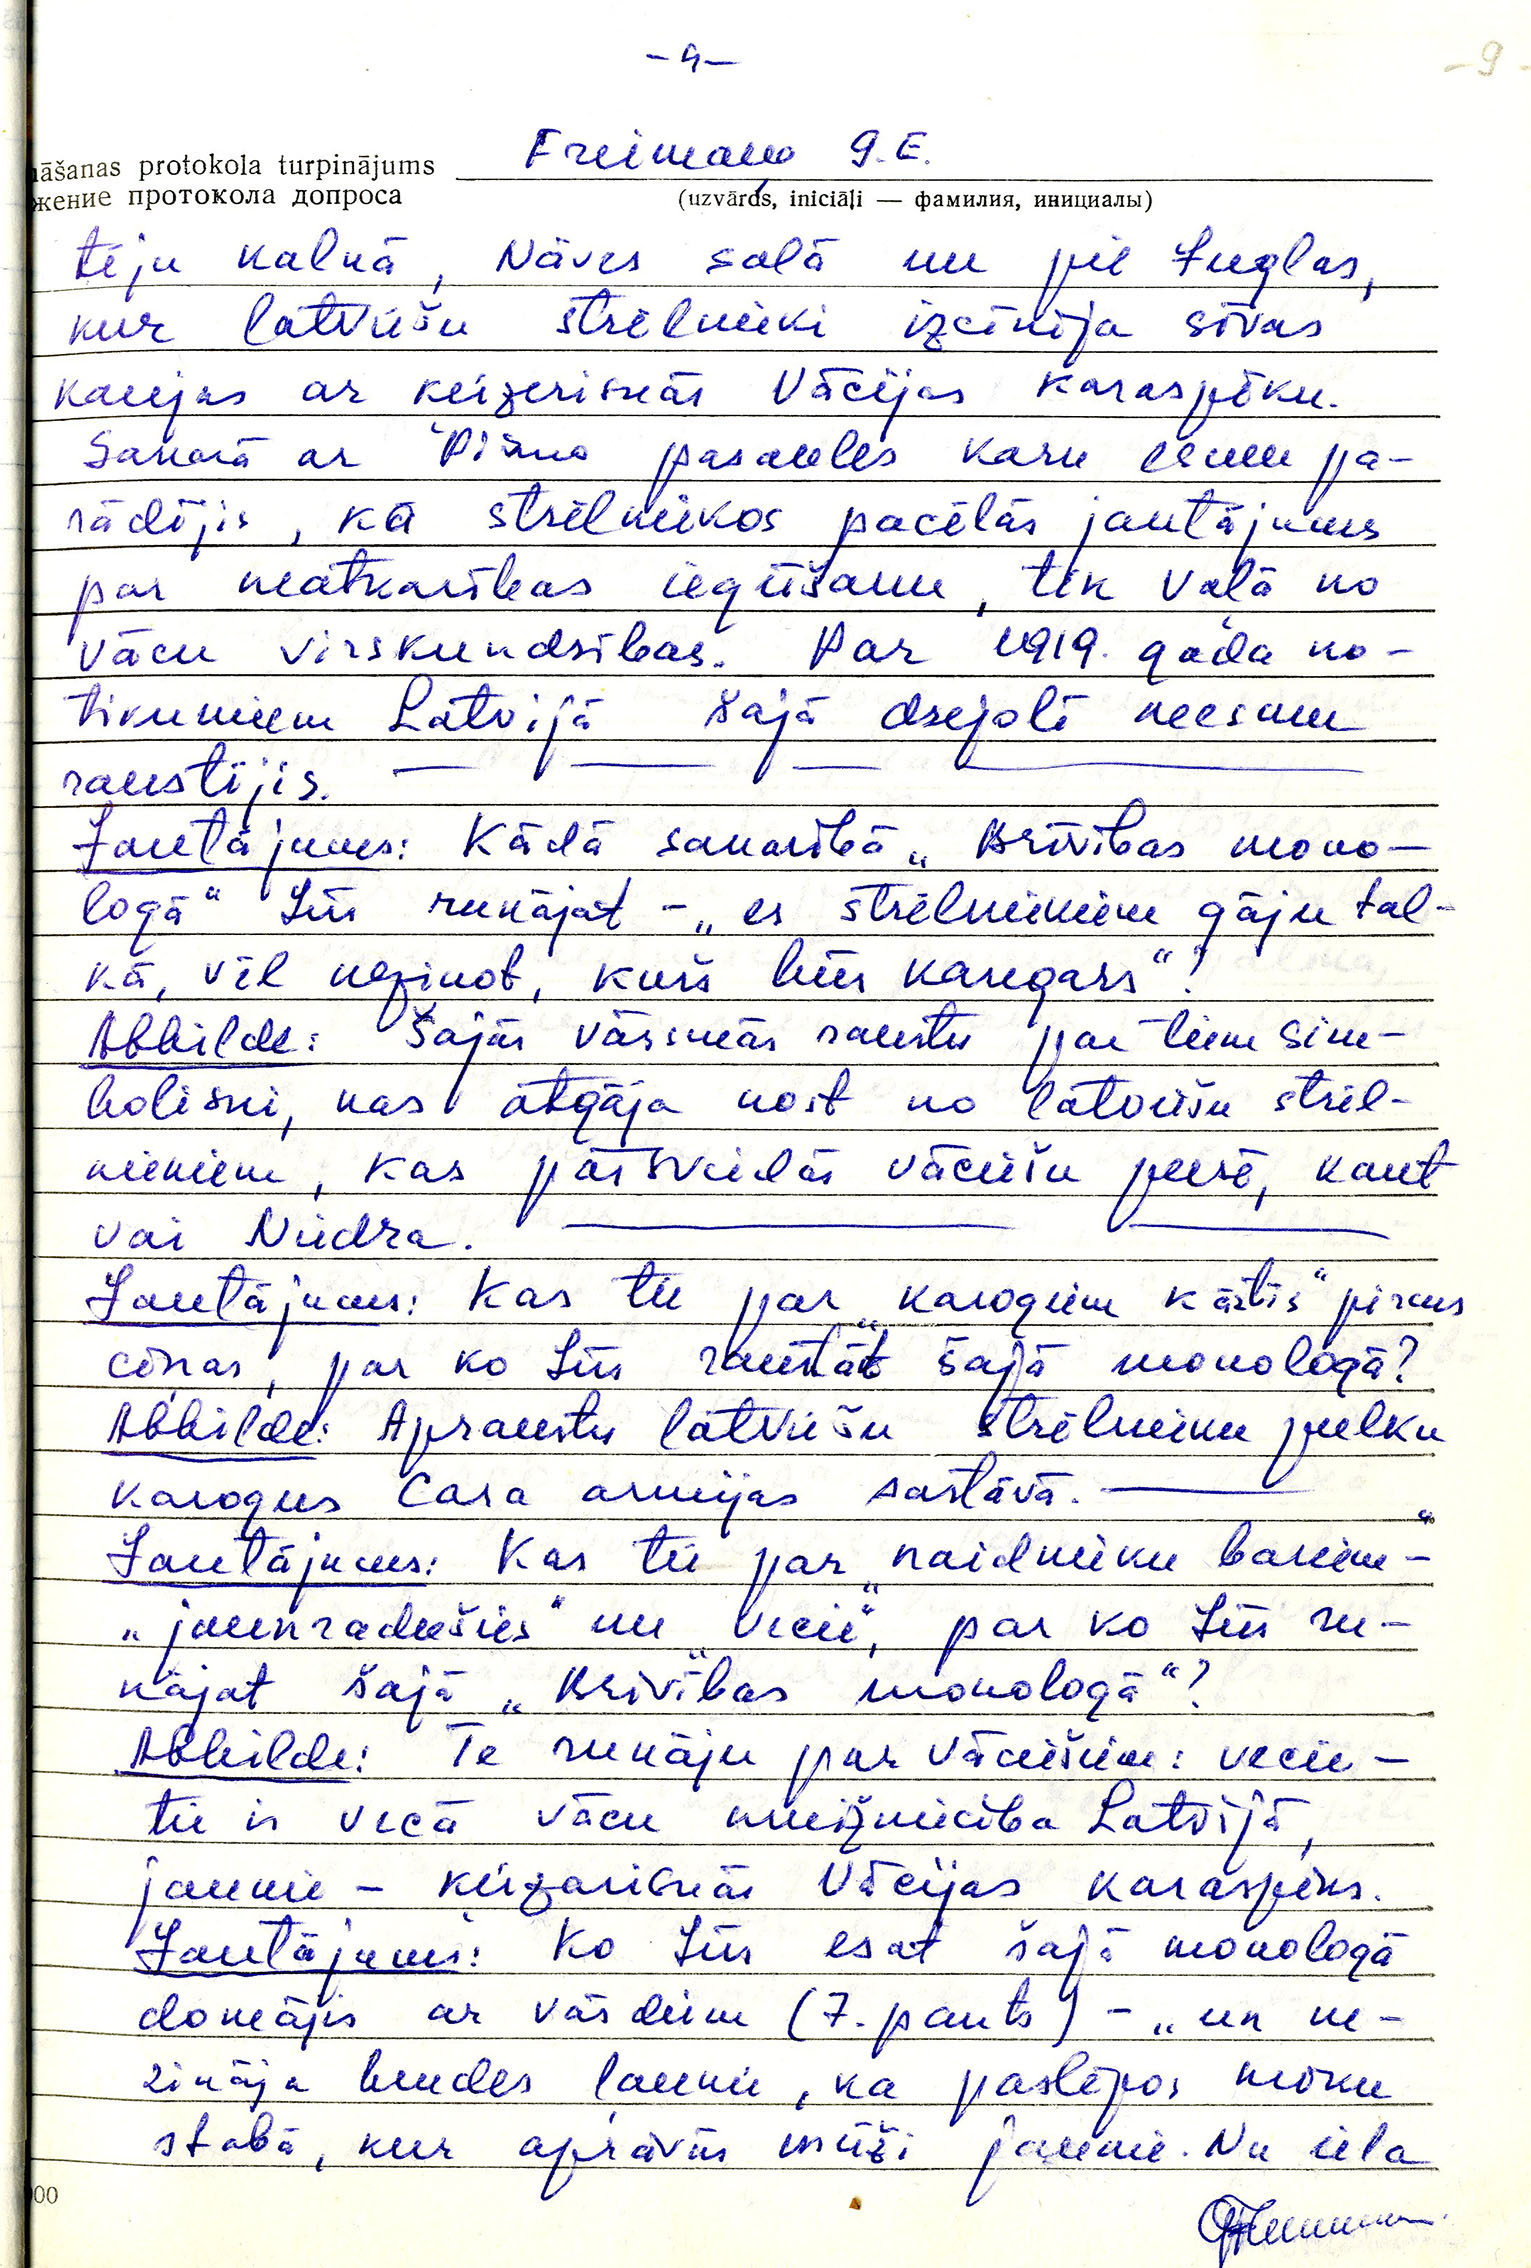 - 9 -
- 9 -
nāšanas protokola turpinājums Freimaņa G. E.
жение протокола допроса (uzvārds, iniciāļi — фамилия, инициалы)
tēju kalnā, Nāves salā un pie Juglas,
kur latviešu strēlnieki izcīnīja sīvas
kaujas ar ķeizeriskās Vācijas karaspēku.
Sakarā ar Pirmo pasaules karu esmu pa-
rādījis, kā strēlniekos pacēlās jautājums
par neatkarības iegūšanu, tik vaļā no
vācu virskundzības. Par 1919. gada no-
tikumiem Latvijā šajā dzejolī neesmu
raustījis.
Jautājums: Kādā sakarībā „Brīvības mono-
logā" Jūs runājat - „es strēlniekiem gāju tal-
kā, vēl nezinot, kurš būs karogars"?
Atbilde: Šajās vārsmās rakstu par tiem sim-
boliski, kas atgāja nost no latviešu strēl-
niekiem, kas pārsviedās vāciešu pusē, kaut
vai Niedra.
Jautājums: Kas tie par „karogiem kārtīs" pirms
cīņas, par ko Jūs rakstāt šajā monologā?
Atbilde: Aprakstu latviešu strēlnieku pulku
karogus Cara armijas sastāvā.
Jautājums: Kas tie par „naidnieku bariem" -
„jaunradušies" un „vecie", par ko Jūs ru-
nājat šajā „Brīvības monologā"?
Atbilde: Te runāju par vāciešiem: vecie -
tie ir vecā vācu muižniecība Latvijā,
jaunie - ķeizariskās Vācijas karaspēks.
Jautājums: Ko Jūs esat šajā monologā
domājis ar vārdiem (7. pants) - „un ne-
zināja bendes ļaunie, ka paslēpos moku
stabā, kur aprāvās mūži jaunie. Nu iela
00